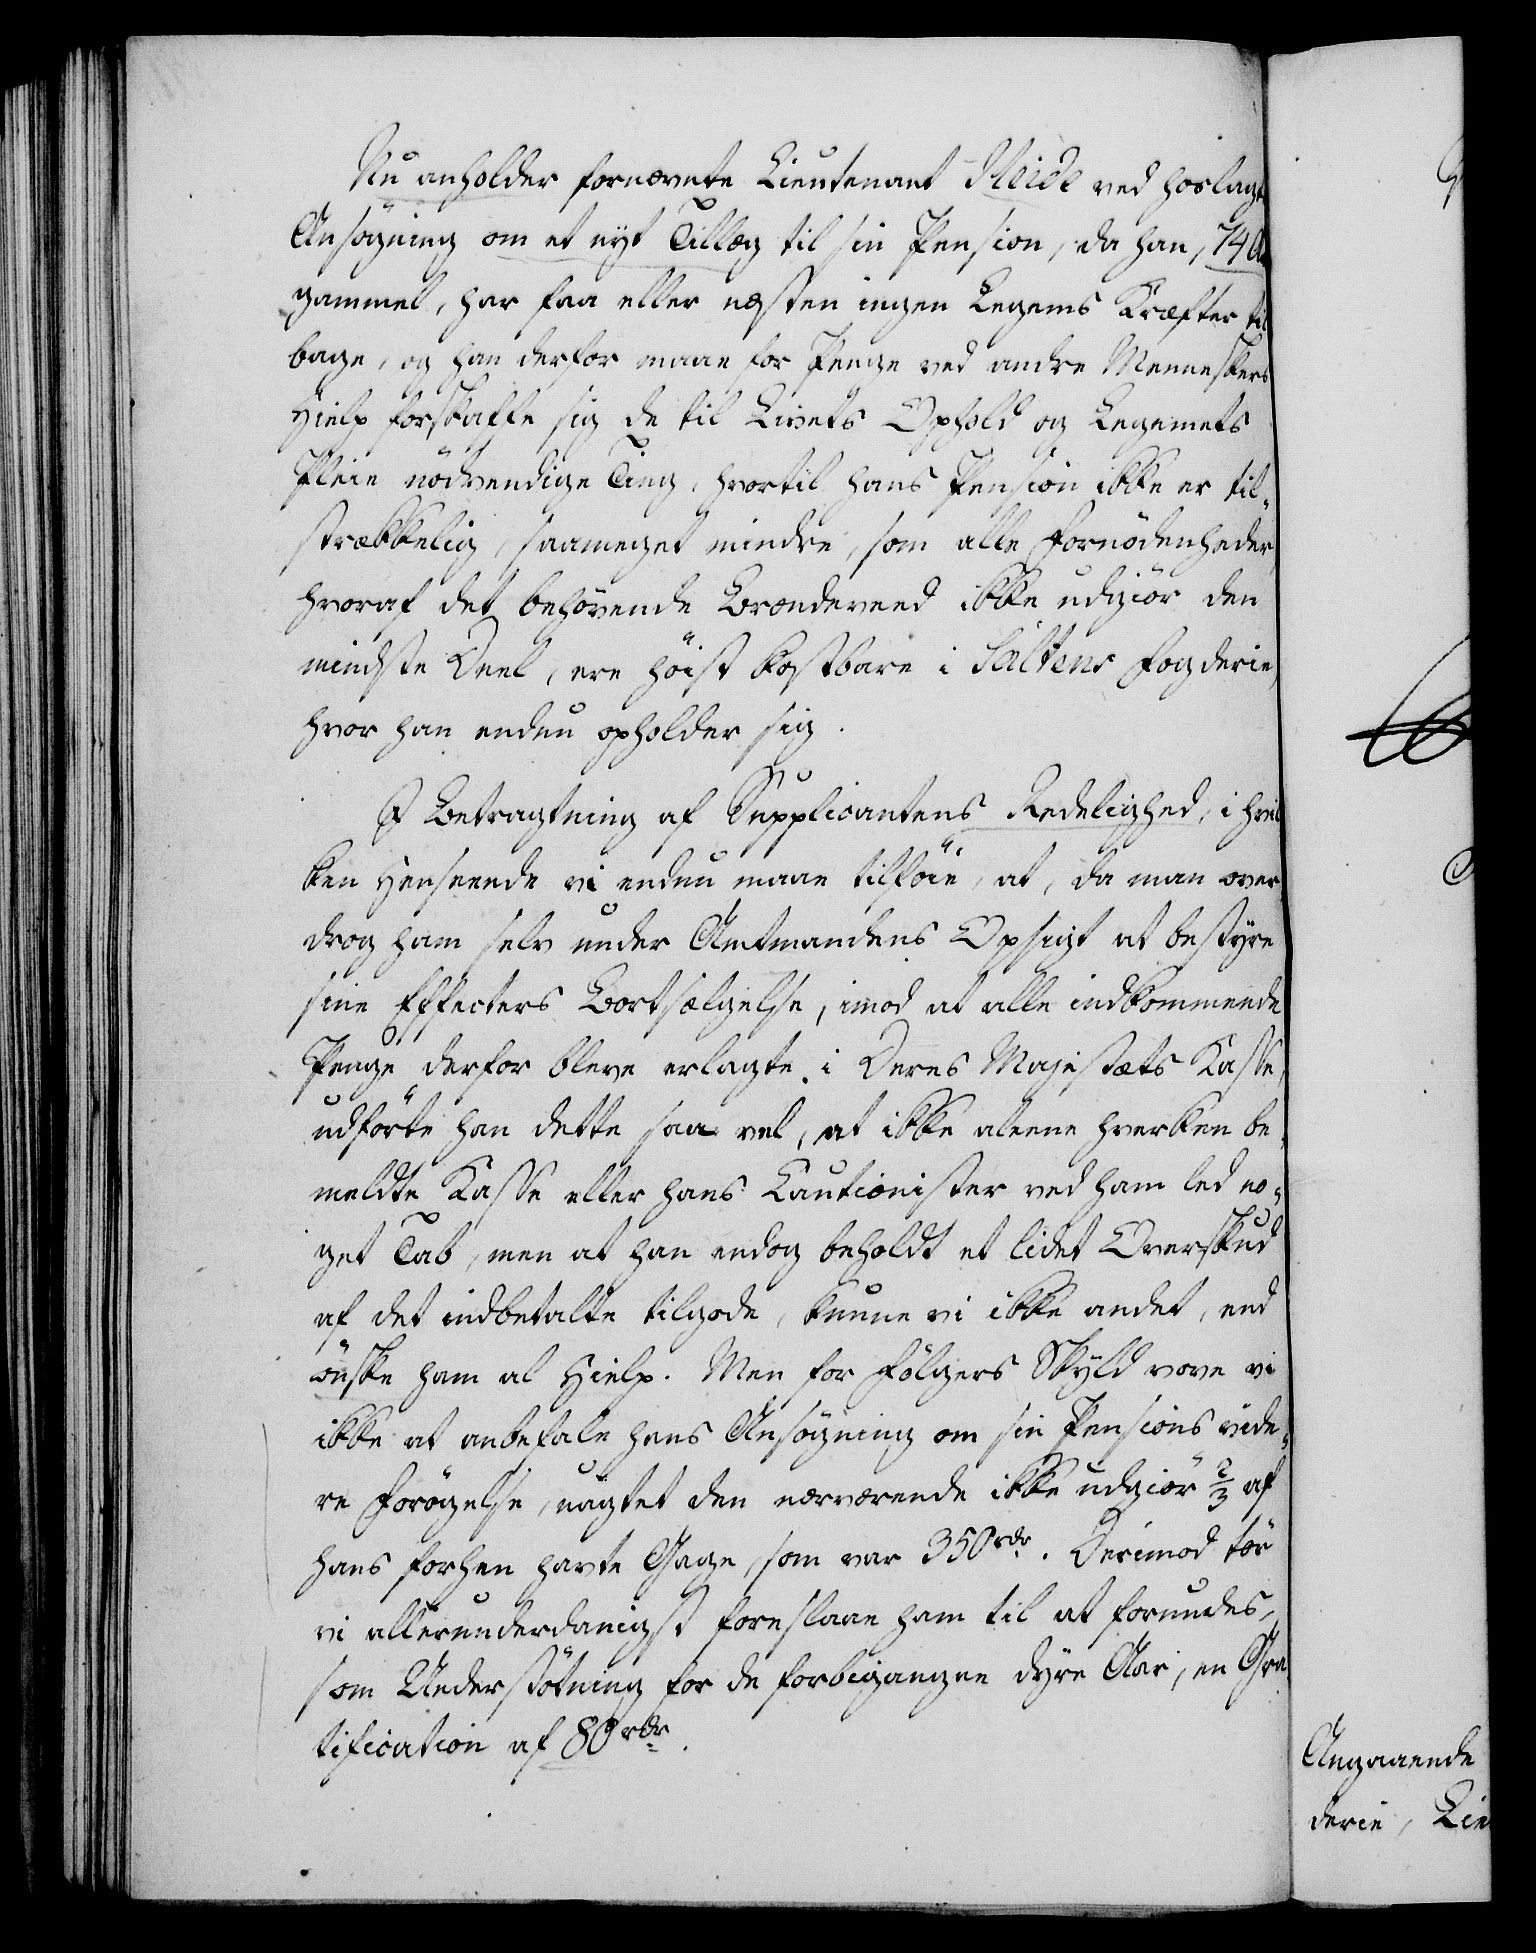 Nu anholder fornævnte Lieutenant Heide ved hoslagt
Ansøgning om et nyt Tillæg til sin Pension, da han, 74 Aar
gammel, har faa eller næsten ingen Legems Kræfter til
bage, og han derfor maae for Penge ved andre Menneskers
Hielp forskaffe sig de til Livets Ophold og Legemets
Pleie nödvendige Ting, hvortil hans Pension ikke er til-
strækkelig, saameget mindre, som alle Fornödenheder,
hvoraf det behövende Brændeveed ikke udgiör den
mindste Deel, ere höist kostbare i Saltens Fogderie,
hvor han endnu opholder sig.
I Betragtning af Supplicantens Redelighed, i hvil
ken Henseende vi endnu maae tilföie, at, da man over
drog ham selv under Amtmandens Opsigt at bestyre
sine Effecters Bortsælgelse, imod at alle indkommende
Penge derfor bleve erlagte i Deres Majestæts Kasse,
udförte han dette saa vel, at ikke aleene hverken be-
meldte Kasse eller hans Cautionister ved ham led no-
get Tab, men at han endog beholdt et lidet Overskud
af det indbetalte tilgode, kunne vi ikke andet, end
önske ham al Hielp. Men for Fölgers Skyld vove vi
ikke at anbefale hans Ansögning om sin Pensions vide-
re Forögelse, uagtet den nærværende ikke udgiör 2/3 af
hans forhen havte Gage, som var 350 rdr. Derimod tör
vi allerunderdanigst foreslaae ham til at forundes,
som Understötning for de forbigangne dyre Aar, en Gra
tification af 80 rdr.
Angaaende
derie, Lieu